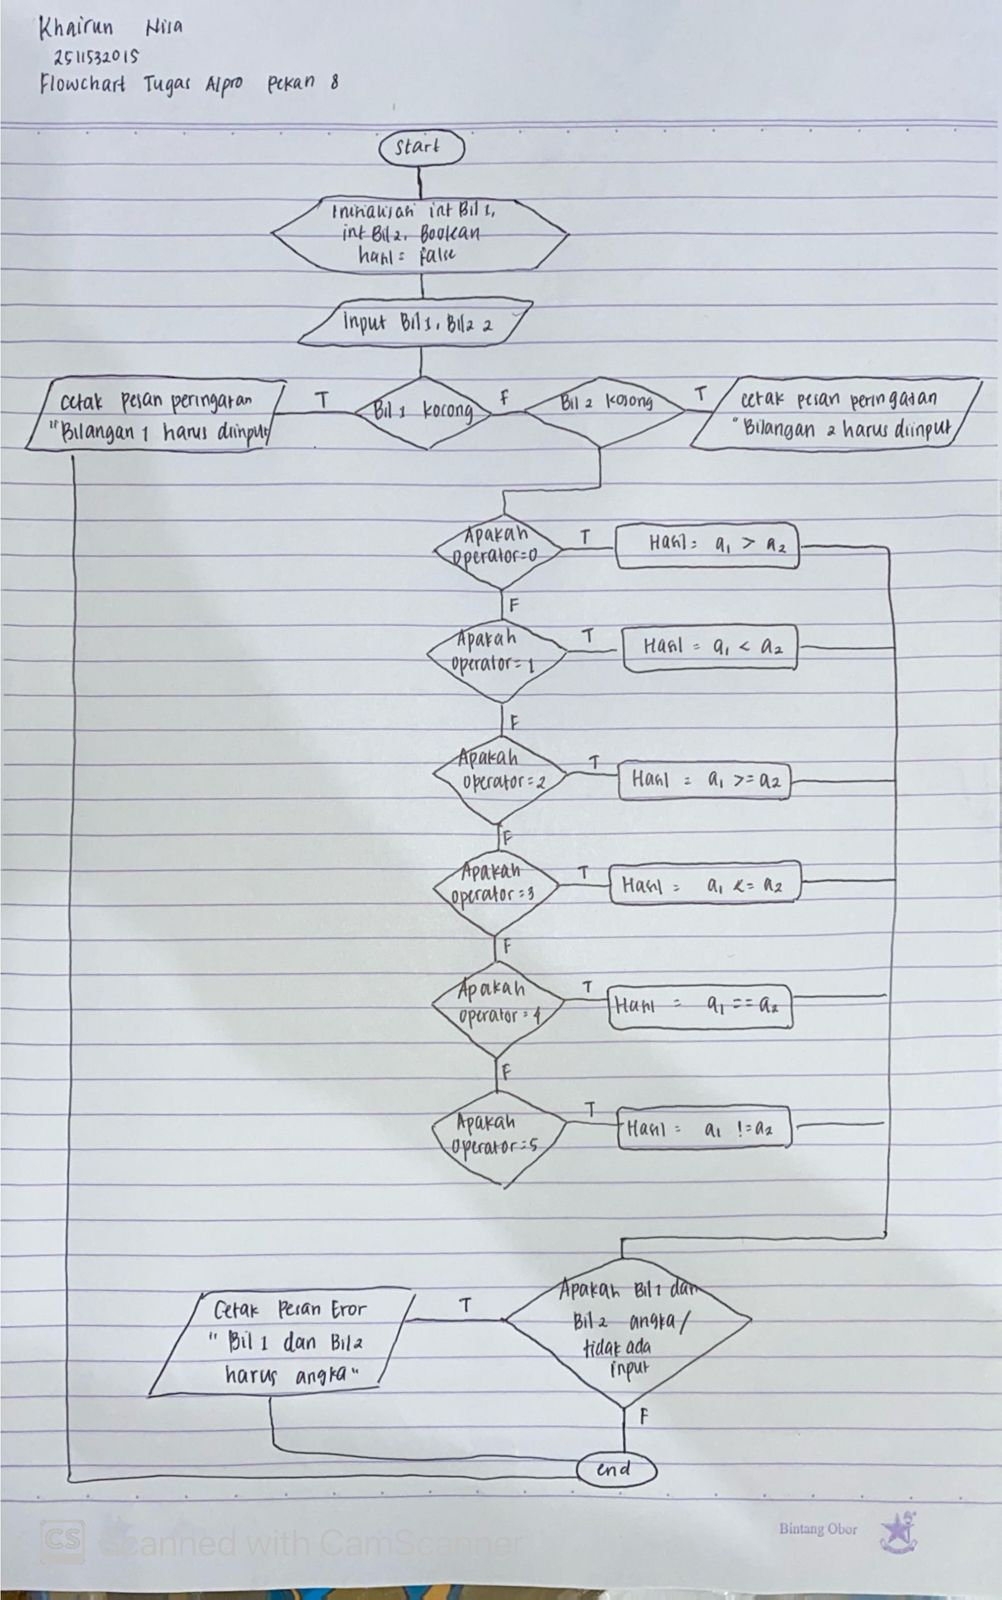 Khairun Nisa
2511532015
Flowchart Tugas Alpro Pekan 8
Start
Inisialisasi int Bil 1,
int Bil 2, Boolean
hasil = false
input Bil 1, Bil 2 2
cetak pesan peringatan
"Bilangan 1 harus diinput
T
Bil 1 kosong
F
Bil 2 kosong
T
cetak pesan peringatan
"Bilangan 2 harus diinput
Apakah
operator=0
T
Hasil = a1 > a2
F
Apakah
operator=1
T
Hasil = a1 < a2
F
Apakah
operator=2
T
Hasil = a1 >= a2
F
Apakah
operator=3
T
Hasil = a1 <= a2
F
Apakah
operator=4
T
Hasil = a1 == a2
F
Apakah
operator=5
T
Hasil = a1 != a2
Cetak Pesan Eror
" Bil 1 dan Bil 2
harus angka"
T
Apakah Bil 1 dan
Bil 2 angka/
tidak ada
input
F
end
Bintang Obor
CS Scanned with CamScanner